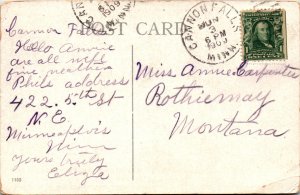 POST CARD
CANNON FALLS
NOV
3
6 PM
1909
MINN.
Cannon Falls
Hello Annie
are all well
fine weather
Phils address
422. 5th St
N.E.
Minneapolis
Minn
Yours truly
Miss Annie Carpenter
Rothiemay
Montana
1103